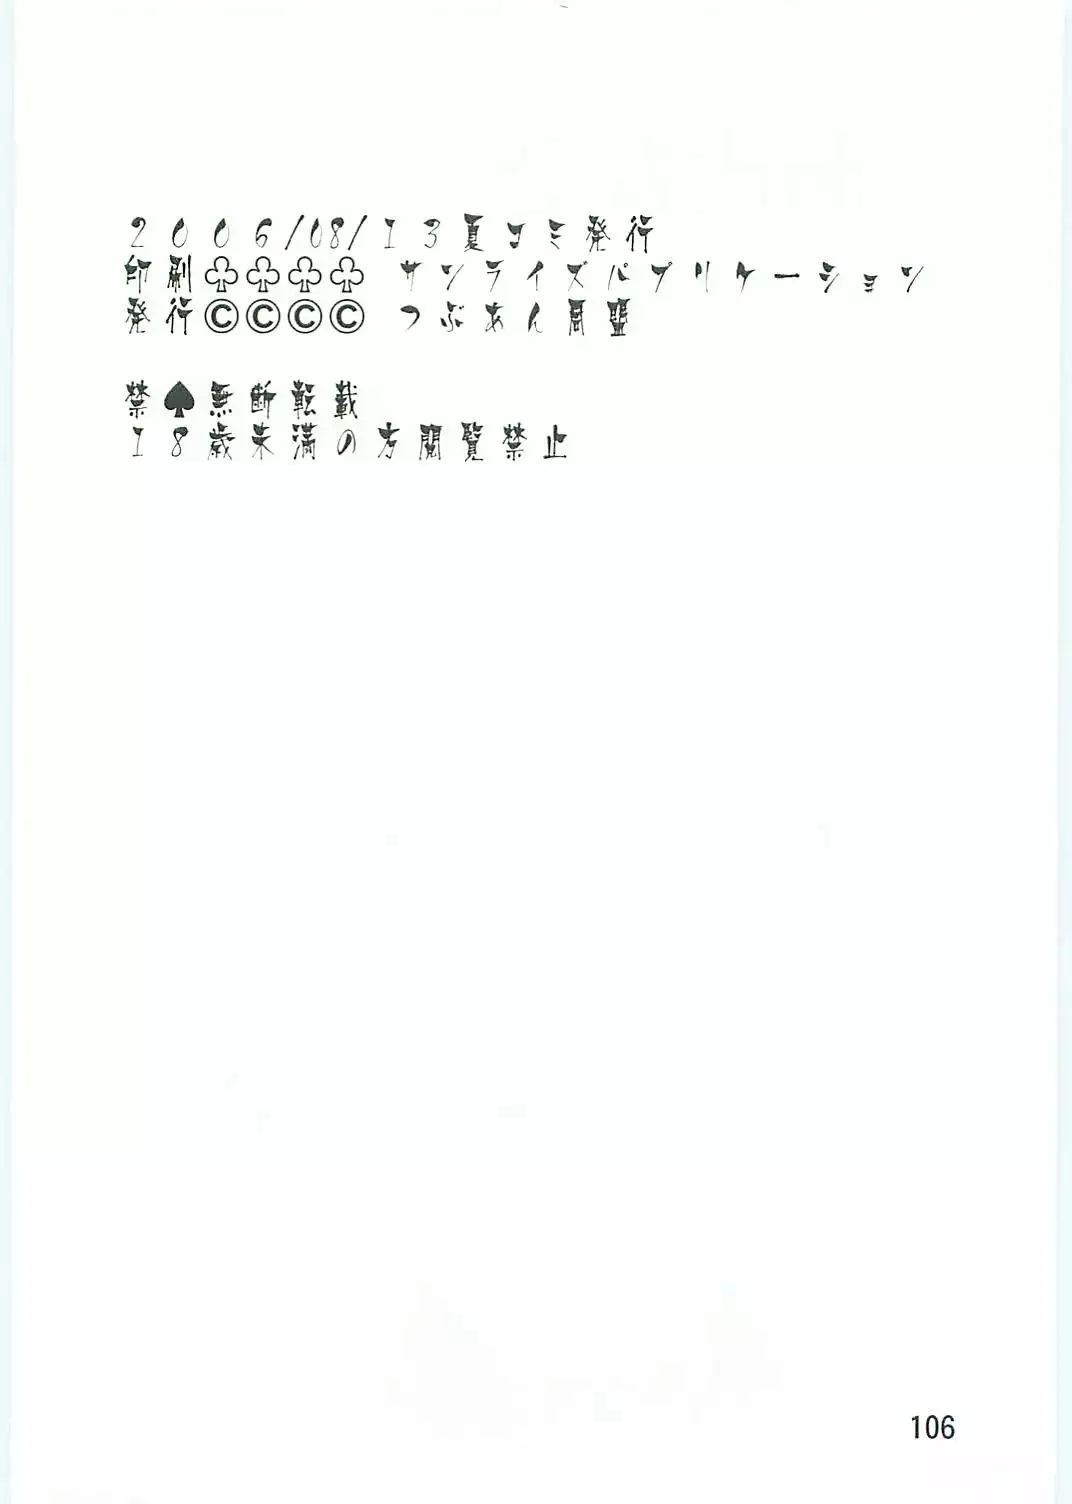 2006/08/13夏コミ発行
印刷♧♧♧♧ サンライズパブリケーション
発行©©©© つぶあん同盟
禁♠無断転載
18歳未満の方閲覧禁止
106